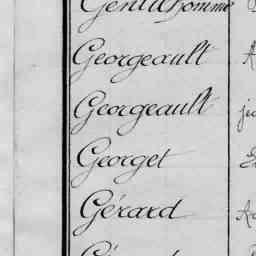 Gentilhomme
Georgeault
Georgeault
Georget
Gérard